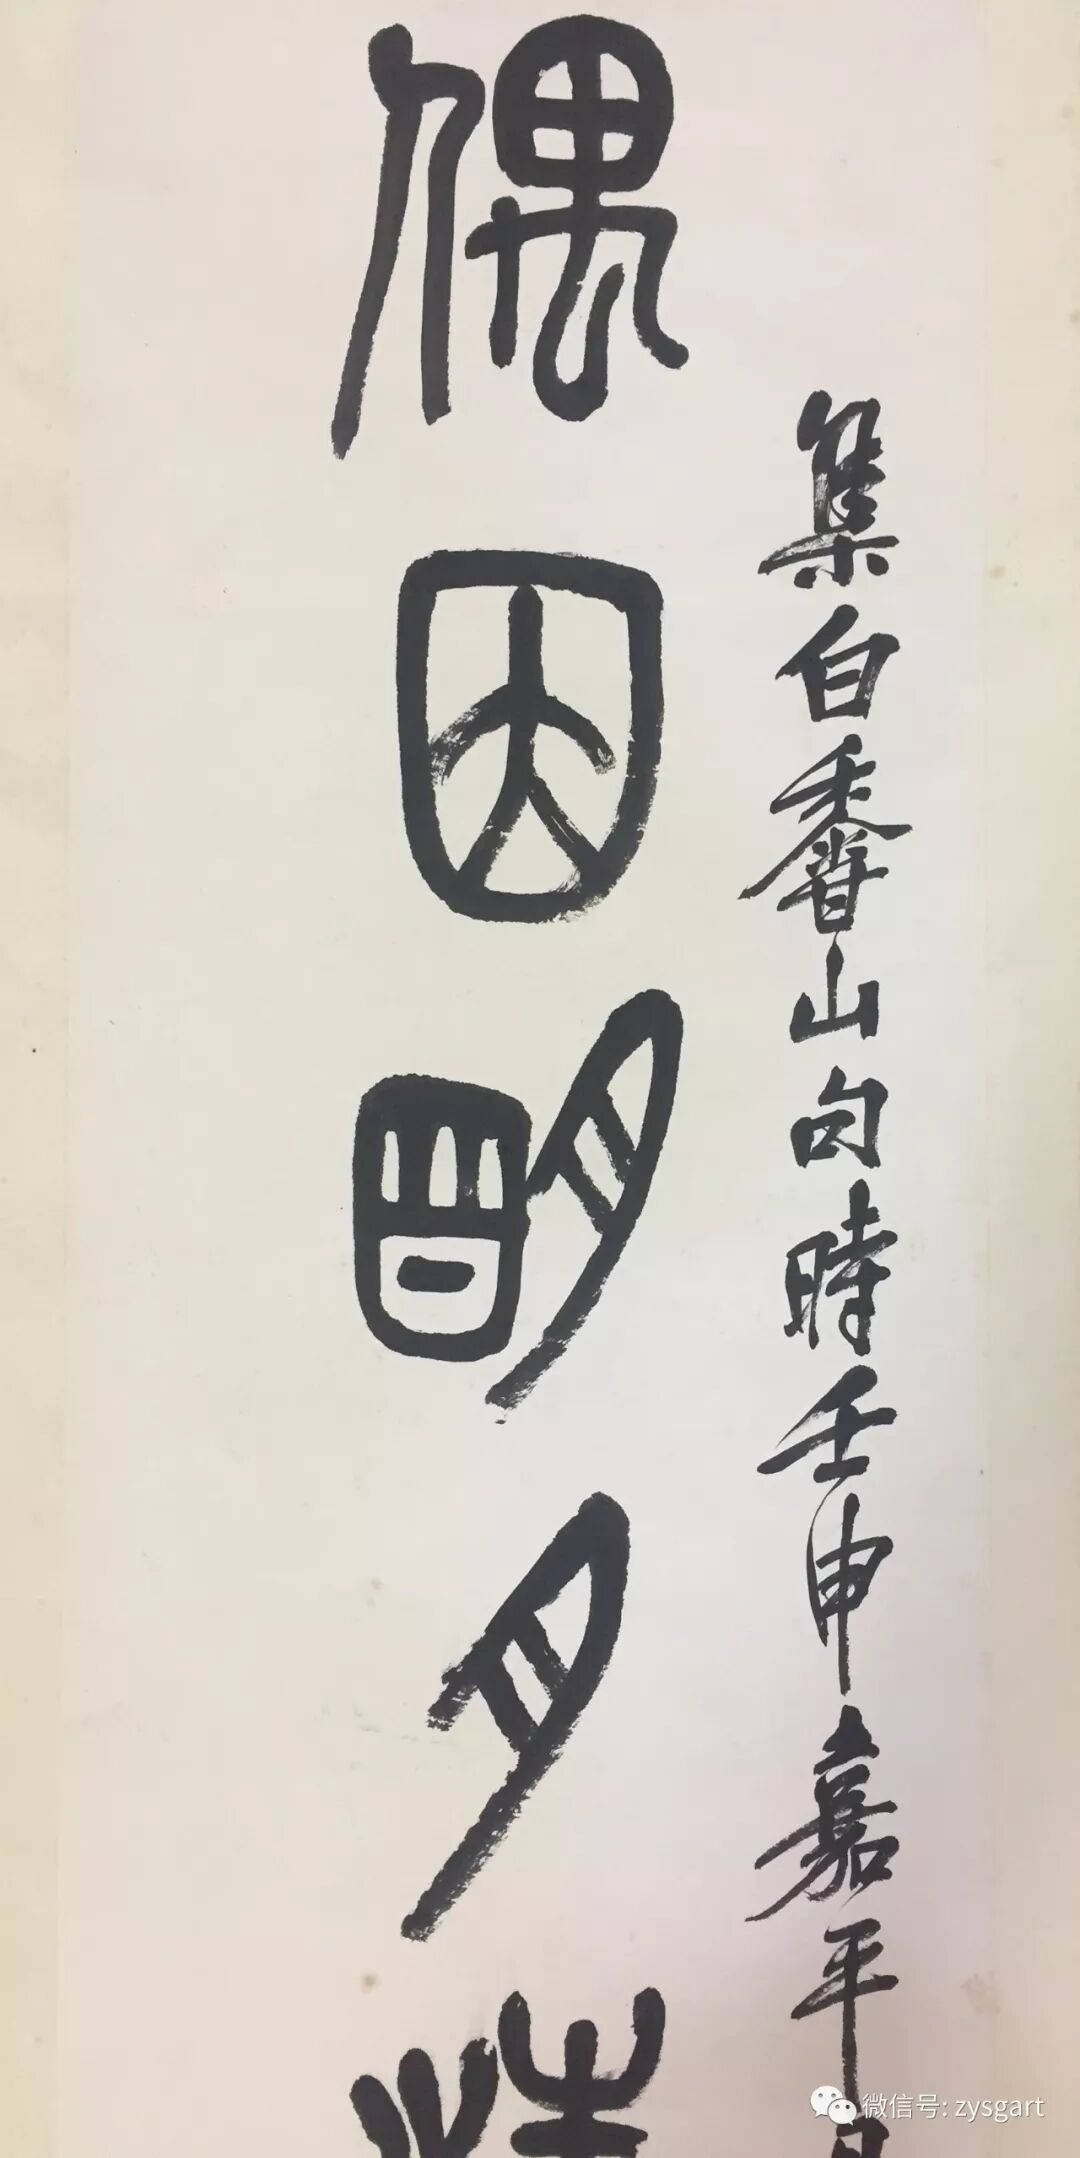 集白香山句時壬申嘉平
偶因明月
微信号: zysgart